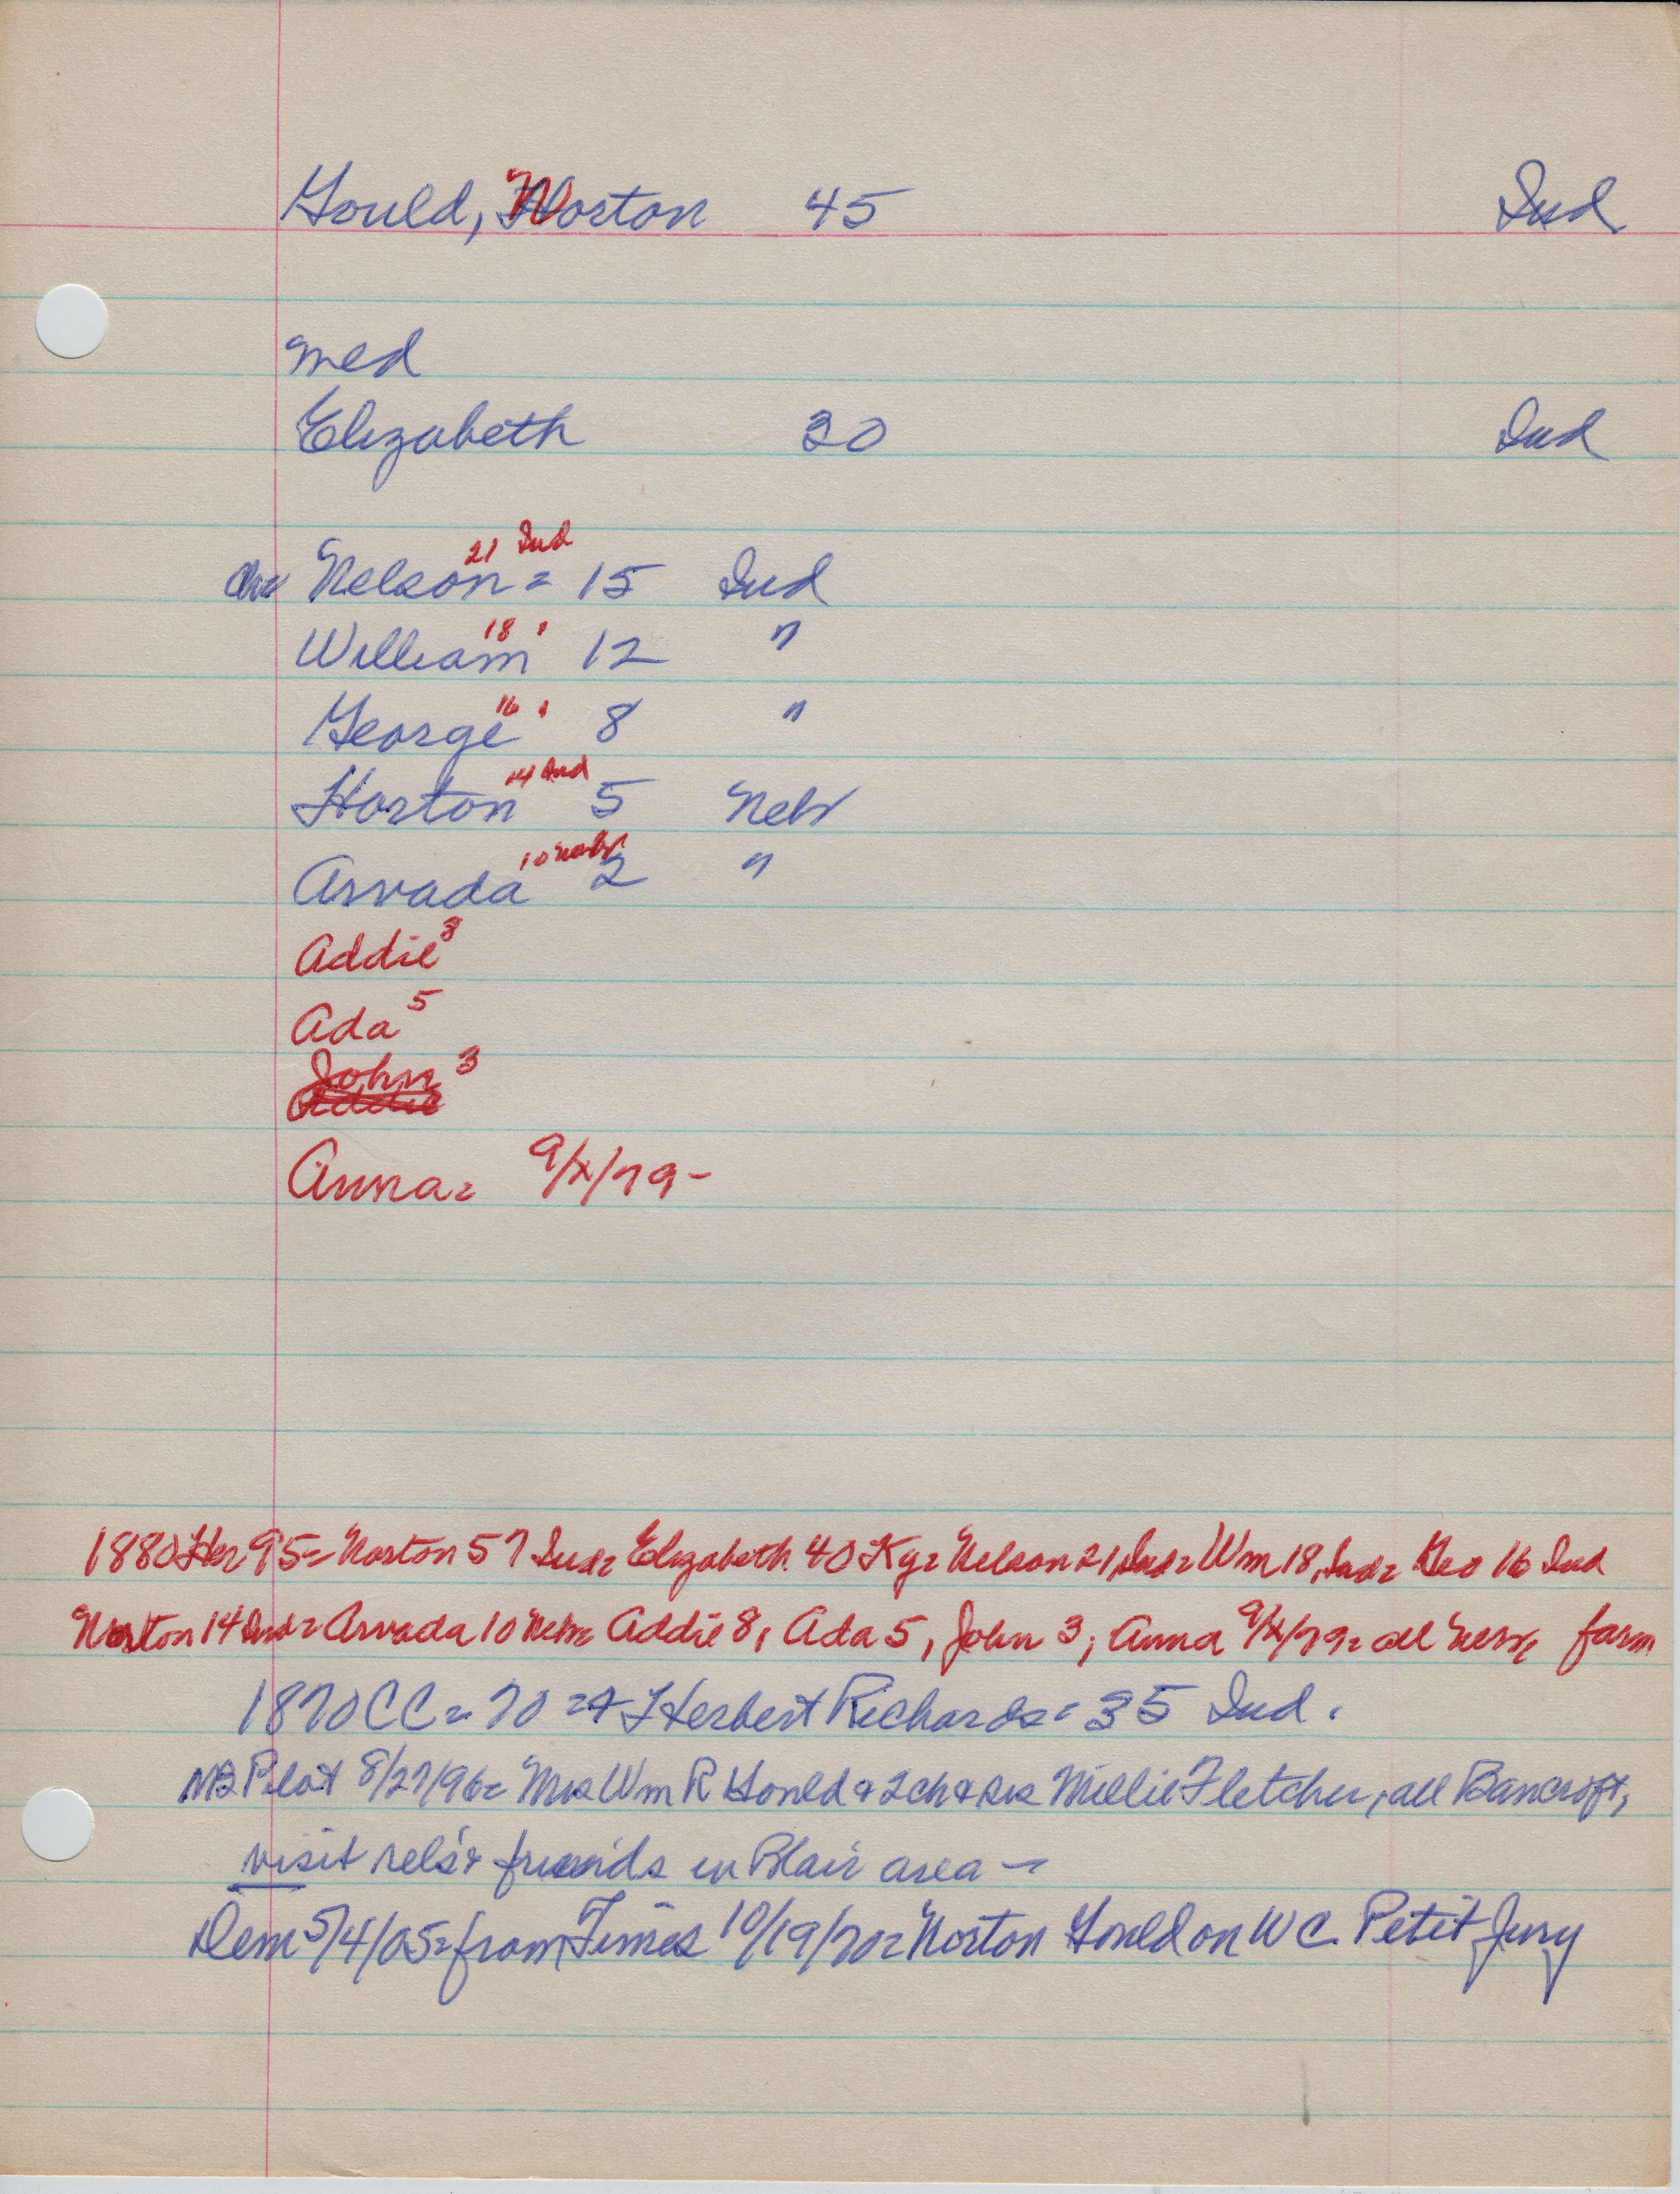 Gould, Norton 45 Ind
med
Elizabeth 30 Ind
21 Ind
Ch= Nelson = 15 Ind
18 "
William 12 "
16 "
George 8 "
14 Ind
Horton 5 Nebr
10 Nebr
Arvada 2 "
Addie 8
Ada 5
John 3
Addie
Anna = 9/x/79-
1880 Her 95= Norton 57 Ind= Elizabeth 40 Ky= Nelson 21, Ind= Wm 18, Ind= Geo 16 Ind
Norton 14 Ind= Arvada 10 Nebr= Addie 8, Ada 5, John 3, Anna 9/x/79= all Nebr, farm
1870 CC= 70 = Herbert Richards= 35 Ind.
Pilot 8/27/96= Mrs Wm R Gould & 2 ch & sis Millie Fletcher, all Bancroft,
visit rels & friends in Blair area —
Dem 5/4/05= from Times 10/19/70= Norton Gould on W C. Petit Jury